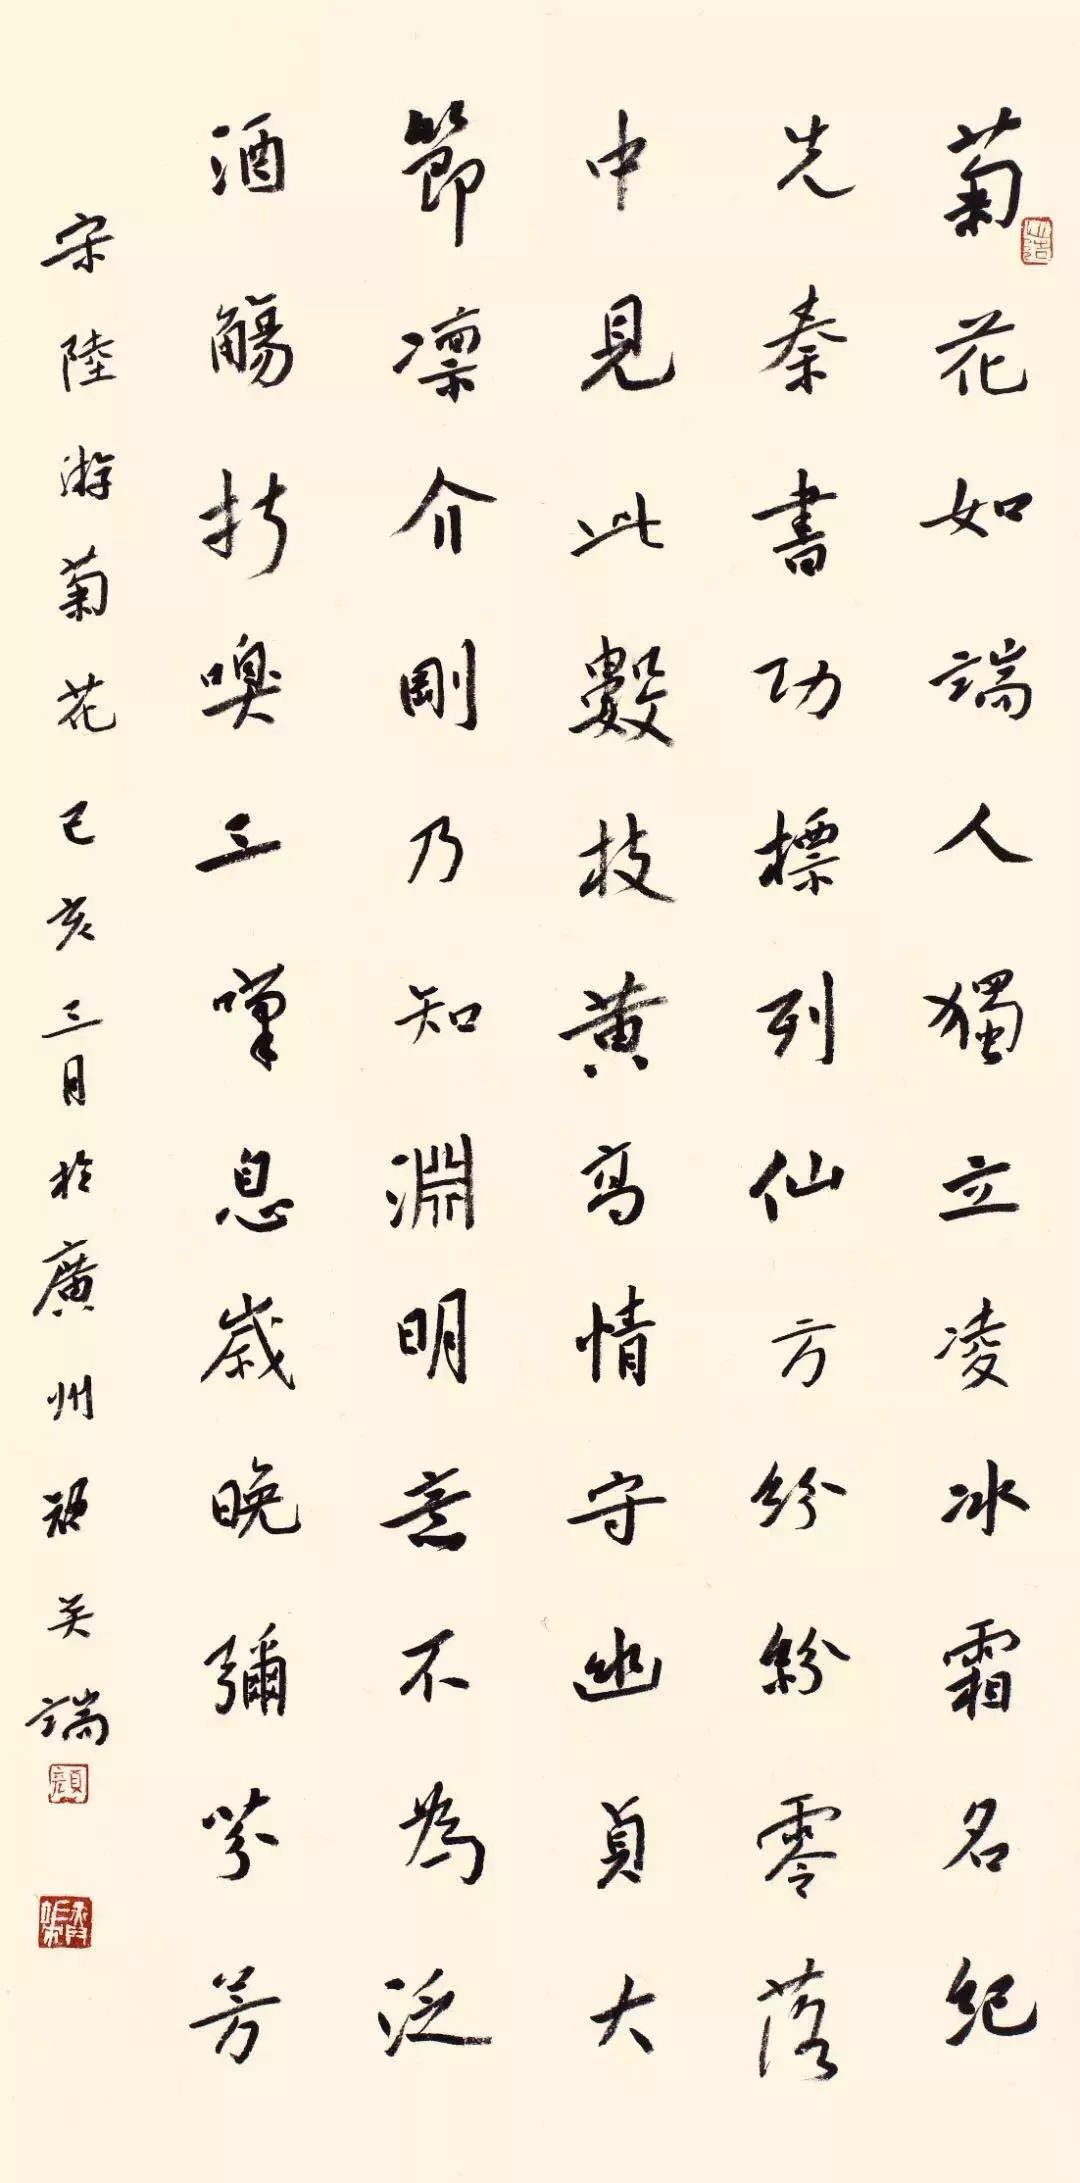 菊花如端人獨立凌冰霜名紀
先秦書功標列仙方紛紛零落
中見此數枝黄高情守幽貞大
節凛介剛乃知淵明意不為泛
酒觴折嗅三嘆息歲晚彌芬芳
宋陸游菊花己亥三月於廣州端